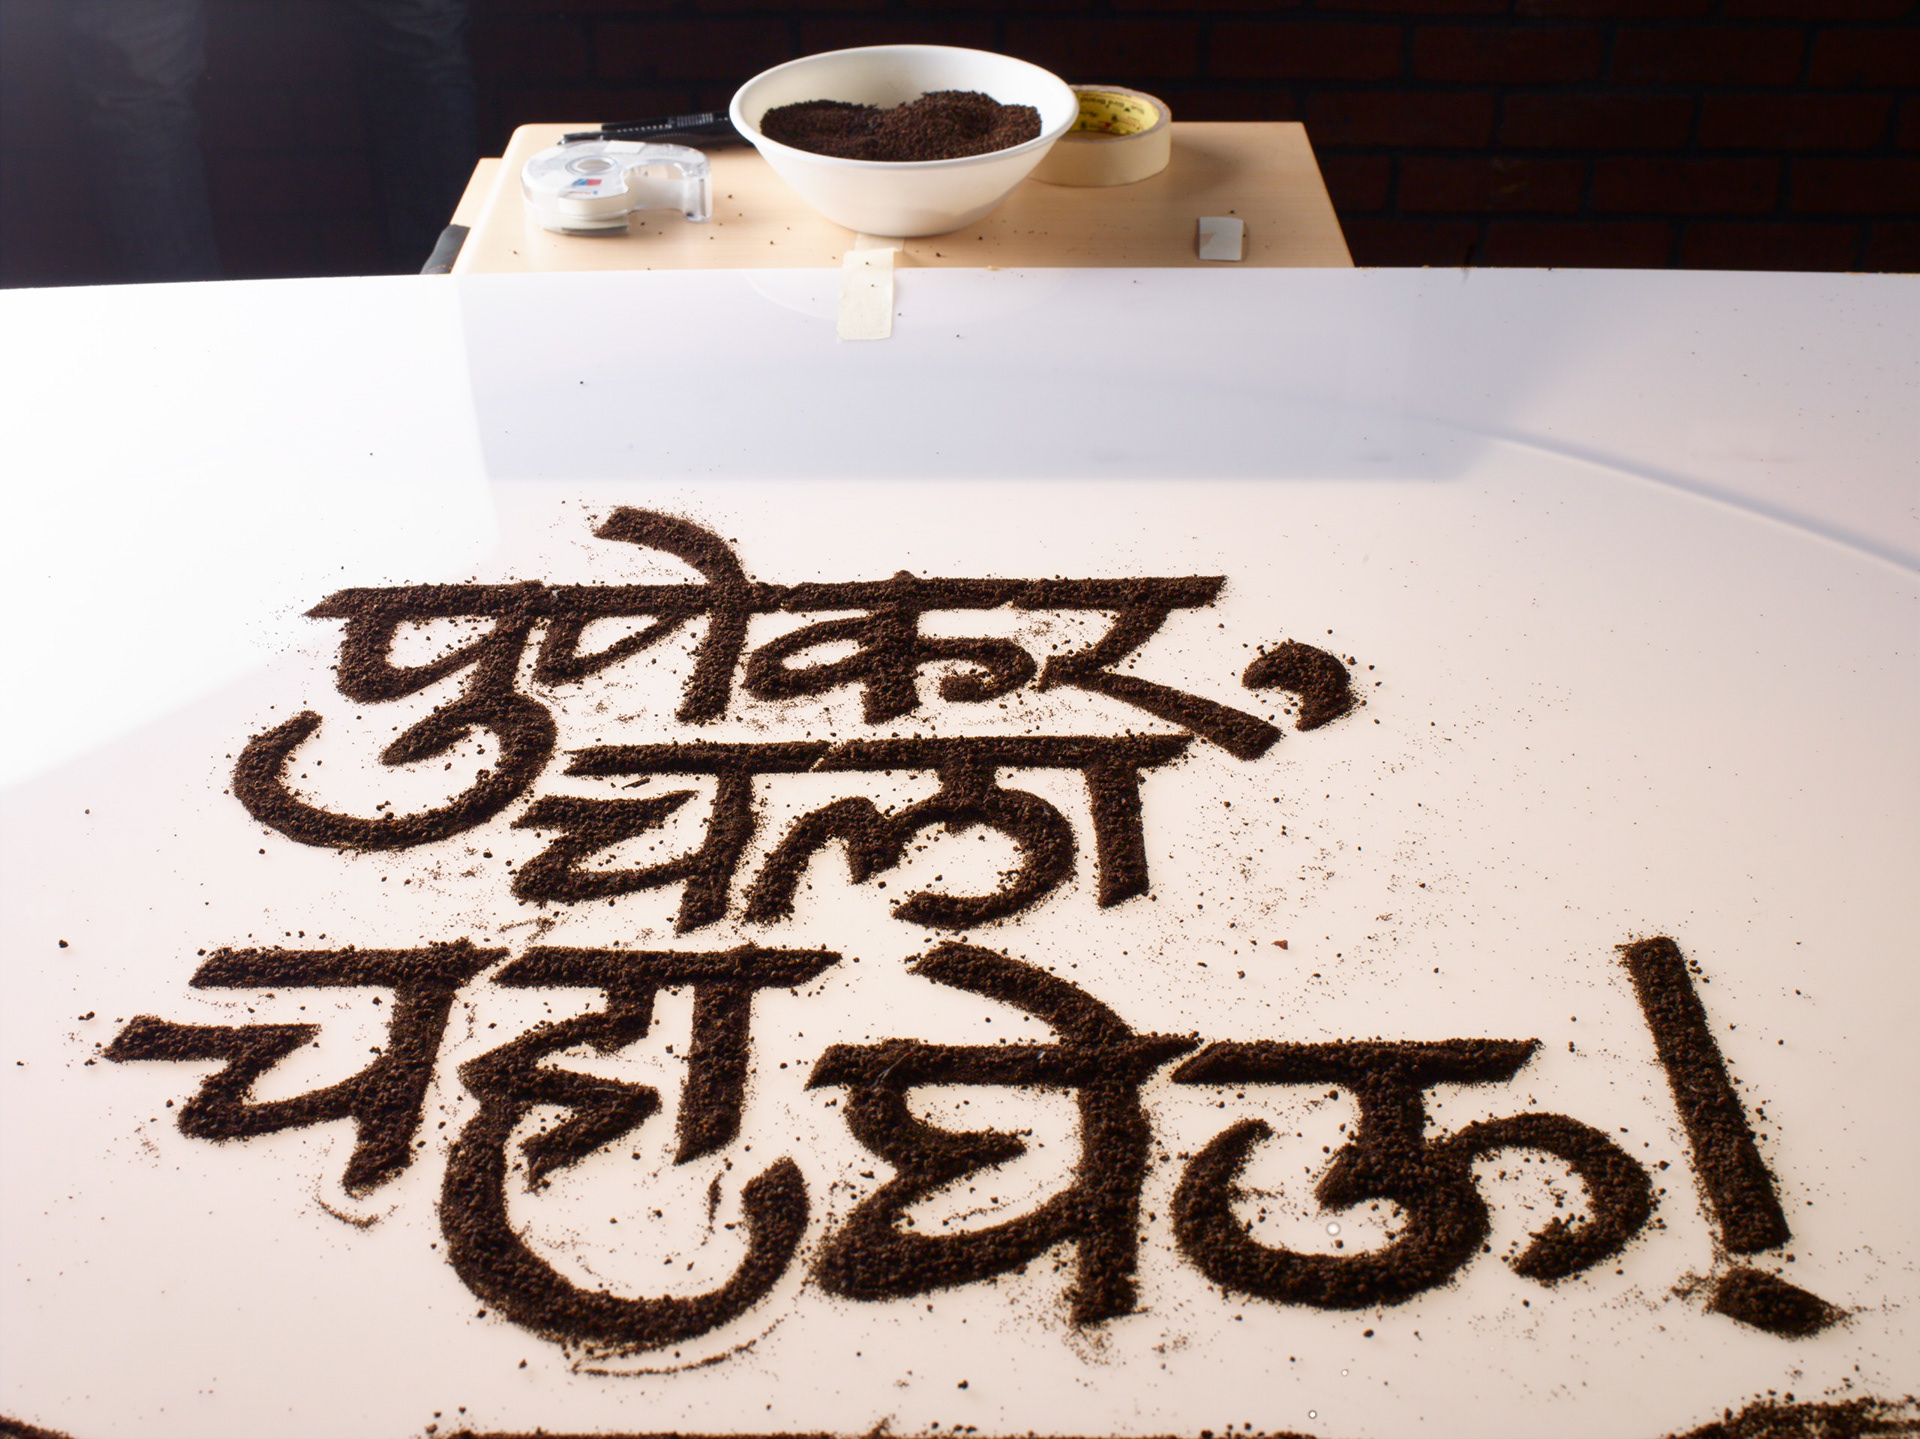 पुणेकर,
चला
चहा घेऊ!